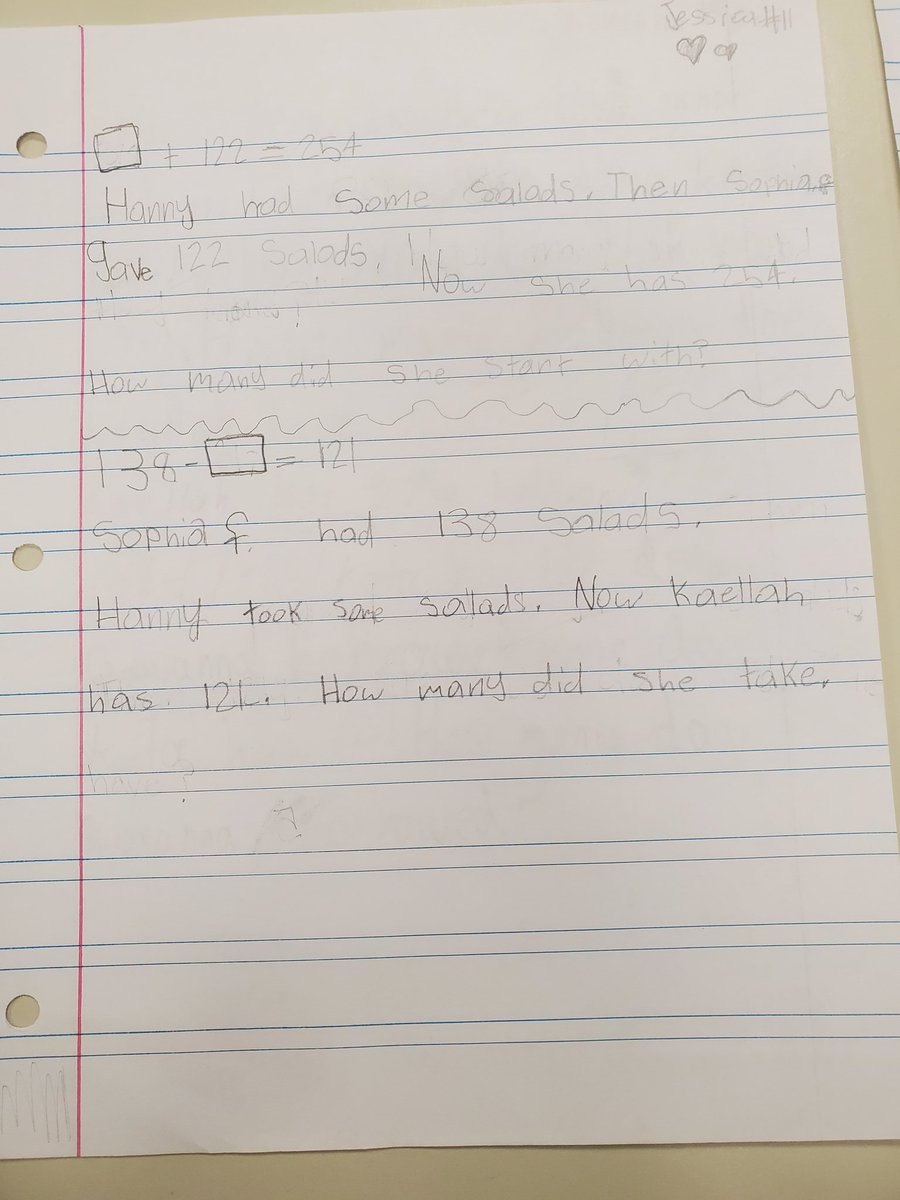 Jessica #11
□ + 122 = 254
Hanny had some salads. Then Sophia.f
gave 122 salads. Now she has 254.
How many did she start with?
138 - □ = 121
Sophia f. had 138 salads.
Hanny took some sallads. Now Kaellah
has 121. How many did she take.
have?
?